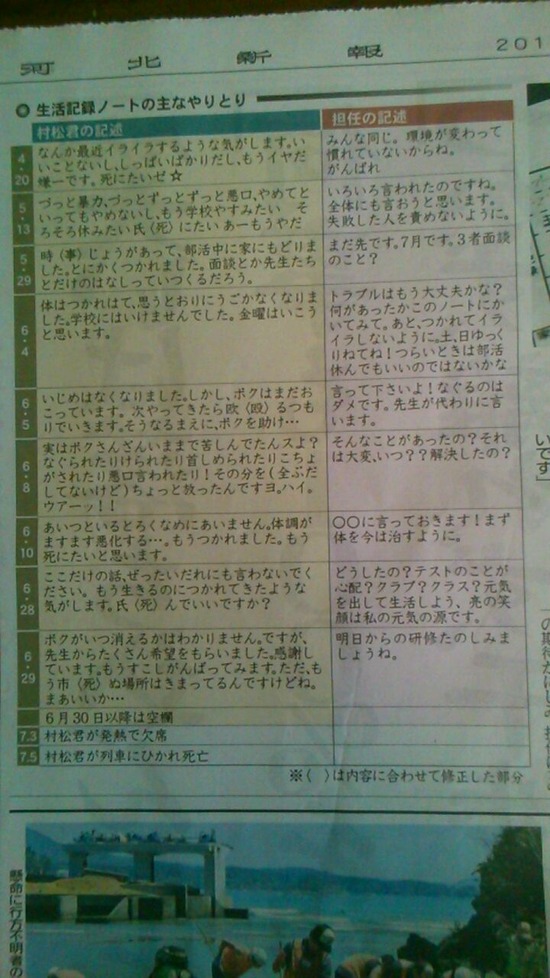 河北新報
201
生活記録ノートの主なやりとり
村松君の記述
担任の記述
4・20
なんか最近イライラするような気がします。い
いことないし、しっぱいばかりだし、もうイヤだ
嫌ーです。死にたいぜ☆
みんな同じ。環境が変わって
慣れていないからね。
がんばれ
5・13
づっと暴力、づっとずっとずっと悪口、やめてと
いってもやめないし、もう学校やすみたい そ
ろそろ休みたい氏〈死〉にたい あーもうやだ
いろいろ言われたのですね。
全体にも言おうと思います。
失敗した人を責めないように。
5・29
時〈事〉じょうがあって、部活中に家にもどりま
した。とにかくつかれました。面談とか先生たち
とだけのはなしていつくるだろう。
まだ先です。7月です。3者面談
のこと?
6・4
体はつかれはて、思うとおりにうごかなくなりま
した。学校にはいけませんでした。金曜はいこう
と思います。
トラブルはもう大丈夫かな?
何があったかこのノートにか
いてみて。あと、つかれてイラ
イラしないように。土、日ゆっく
りねてね!つらいときは部活
休んでもいいのではないかな
6・5
いじめはなくなりました。しかし、ボクはまだお
こっています。次やってきたら欧〈殴〉るつも
りでいきます。そうなるまえに、ボクを助け…
言って下さいよ!なぐるのは
ダメです。先生が代わりに言
います。
6・8
実はボクさんざんいままで苦しんでたんスよ?
なぐられたりけられたり首しめられたりこちょ
がされたり悪口言われたり!その分を(全ぶだ
してないけど)ちょっと放ったんですヨ。ハイ。
ウアーッ!!
そんなことがあったの?それ
は大変、いつ??解決したの?
6・10
あいつといるとろくなめにあいません。体調が
ますます悪化する…。もうつかれました。もう
死にたいと思います。
○○に言っておきます!まず
体を今は治すように。
6・28
ここだけの話、ぜったいだれにも言わないでく
ださい。もう生きるのにつかれてきたような
気がします。氏〈死〉んでいいですか?
どうしたの?テストのことが
心配?クラブ?クラス?元気
を出して生活しよう、亮の笑
顔は私の元気の源です。
6・29
ボクがいつ消えるかはわかりません。ですが、
先生からたくさん希望をもらいました。感謝し
ています。もうすこしがんばってみます。ただ、も
う市〈死〉ぬ場所はきまってるんですけどね。
まあいいか…
明日からの研修たのしみま
しょうね。
6月30日以降は空欄
7.3
村松君が発熱で欠席
7.5
村松君が列車にひかれ死亡
※〈 〉は内容に合わせて修正した部分
いです」
懸命に行方不明者の